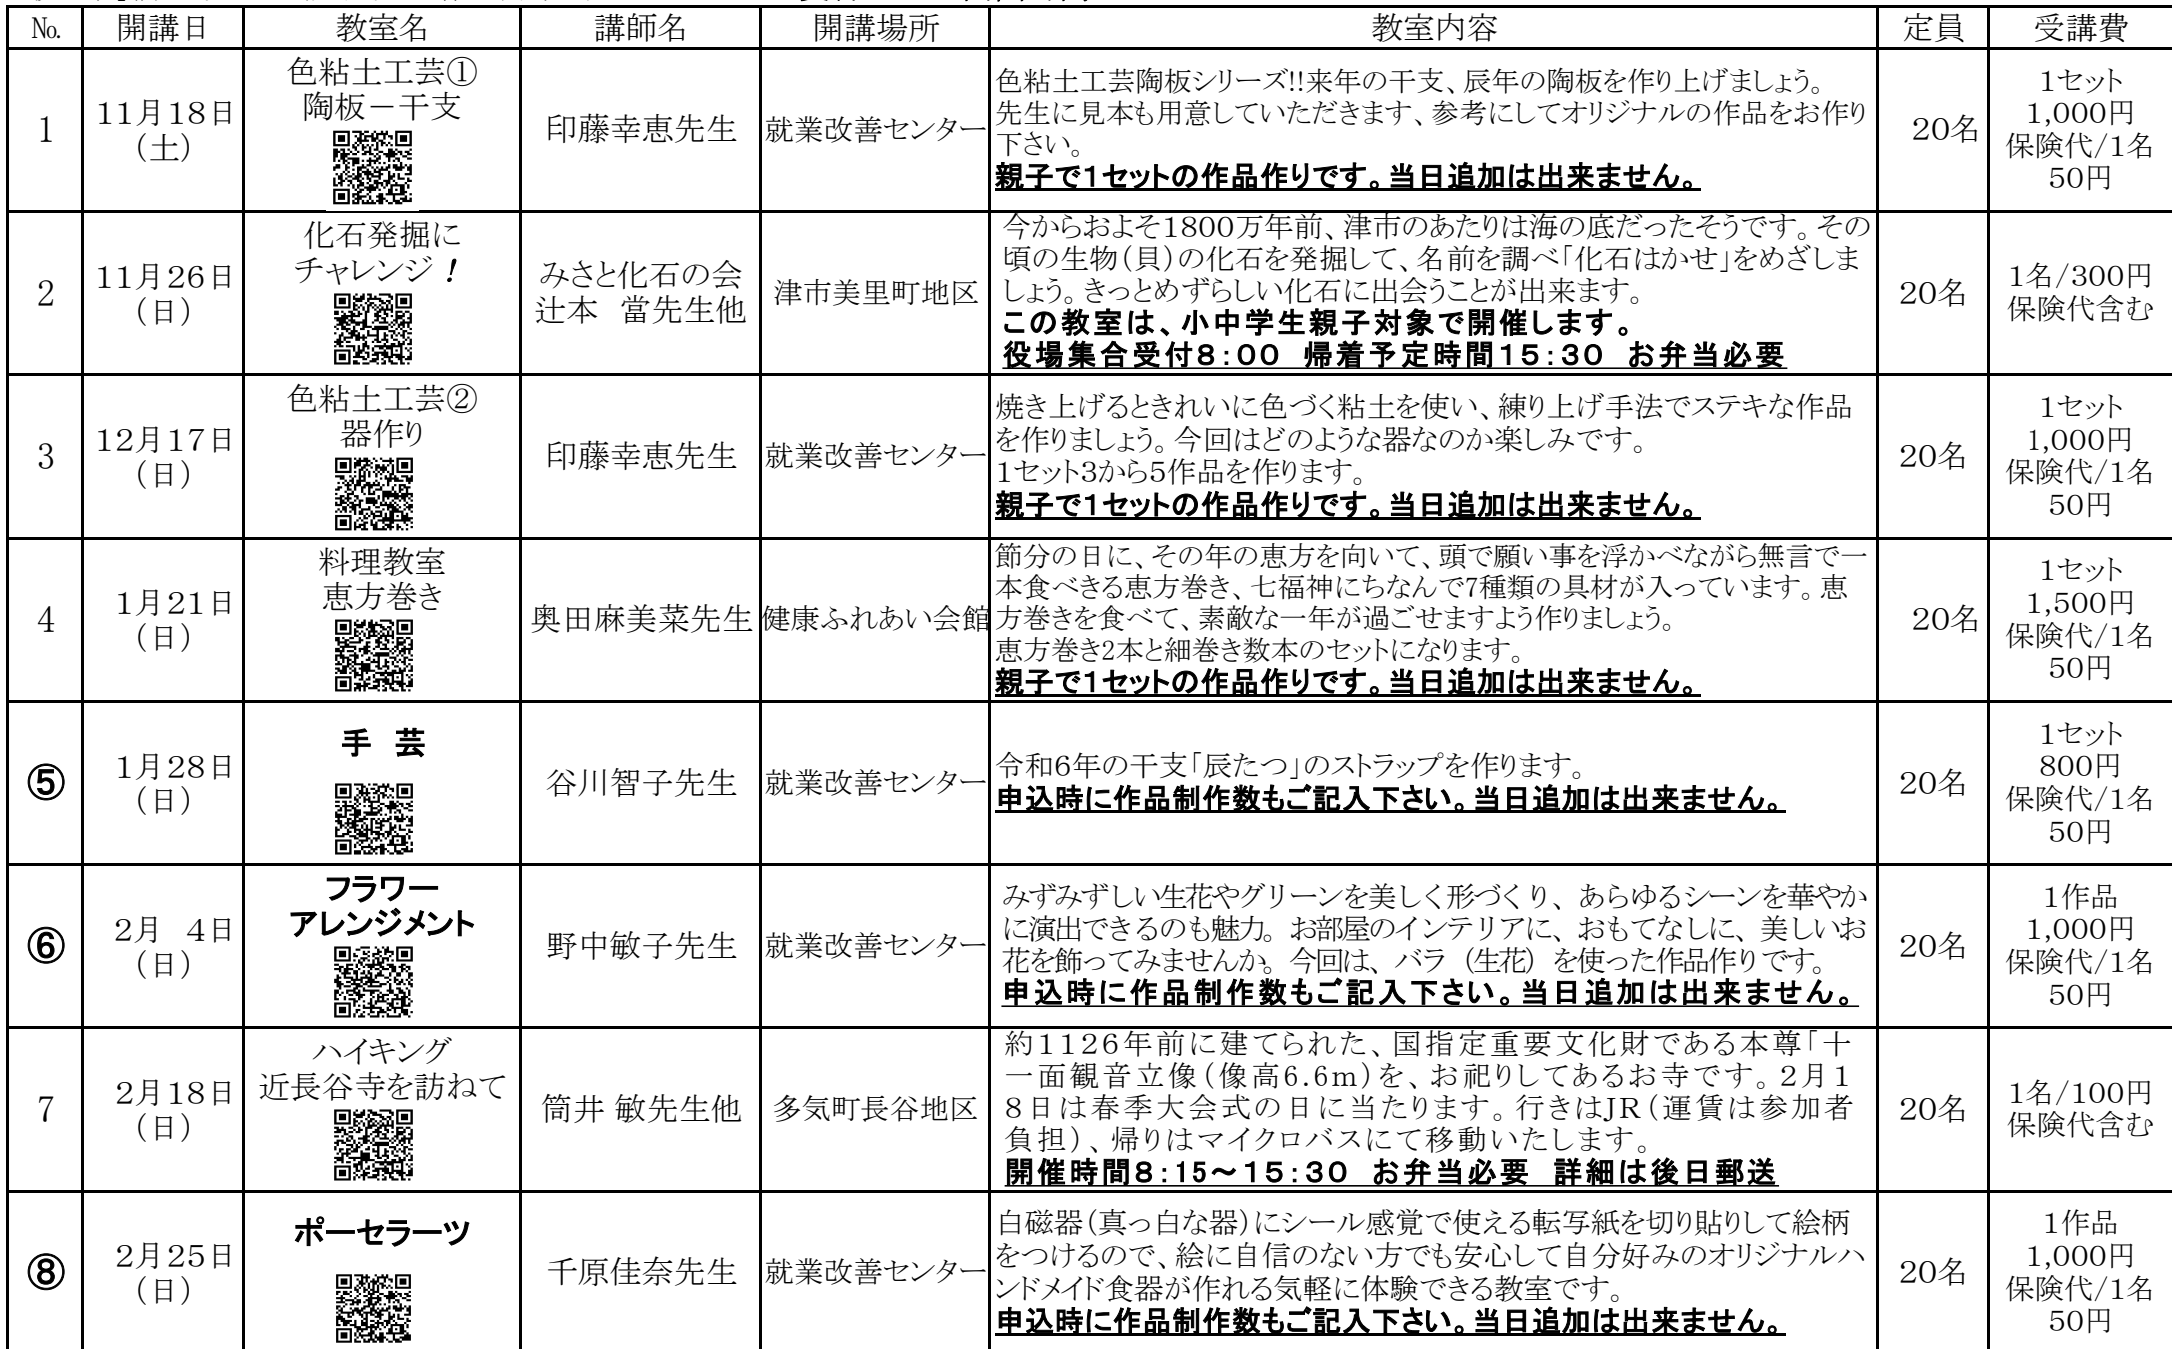 № 開講日 教室名 講師名 開講場所 教室内容 定員 受講費
1
11月18日
(土)
色粘土工芸①
陶板－干支
印藤幸恵先生
就業改善センター
色粘土工芸陶板シリーズ!!来年の干支、辰年の陶板を作り上げましょう。
先生に見本も用意していただきます、参考にしてオリジナルの作品をお作り
下さい。
親子で1セットの作品作りです。当日追加は出来ません。
20名
1セット
1,000円
保険代/1名
50円
2
11月26日
(日)
化石発掘に
チャレンジ！
みさと化石の会
辻本　當先生他
津市美里町地区
今からおよそ1800万年前、津市のあたりは海の底だったそうです。その
頃の生物(貝)の化石を発掘して、名前を調べ「化石はかせ」をめざしま
しょう。きっとめずらしい化石に出会うことが出来ます。
この教室は、小中学生親子対象で開催します。
役場集合受付8:00　帰着予定時間15:30　お弁当必要
20名
1名/300円
保険代含む
3
12月17日
(日)
色粘土工芸②
器作り
印藤幸恵先生
就業改善センター
焼き上げるときれいに色づく粘土を使い、練り上げ手法でステキな作品
を作りましょう。今回はどのような器なのか楽しみです。
1セット3から5作品を作ります。
親子で1セットの作品作りです。当日追加は出来ません。
20名
1セット
1,000円
保険代/1名
50円
4
1月21日
(日)
料理教室
恵方巻き
奥田麻美菜先生
健康ふれあい会館
節分の日に、その年の恵方を向いて、頭で願い事を浮かべながら無言で一
本食べきる恵方巻き、七福神にちなんで7種類の具材が入っています。恵
方巻きを食べて、素敵な一年が過ごせますよう作りましょう。
恵方巻き2本と細巻き数本のセットになります。
親子で1セットの作品作りです。当日追加は出来ません。
20名
1セット
1,500円
保険代/1名
50円
⑤
1月28日
(日)
手　芸
谷川智子先生
就業改善センター
令和6年の干支「辰たつ」のストラップを作ります。
申込時に作品制作数もご記入下さい。当日追加は出来ません。
20名
1セット
800円
保険代/1名
50円
⑥
2月　4日
(日)
フラワー
アレンジメント
野中敏子先生
就業改善センター
みずみずしい生花やグリーンを美しく形づくり、あらゆるシーンを華やか
に演出できるのも魅力。お部屋のインテリアに、おもてなしに、美しいお
花を飾ってみませんか。今回は、バラ（生花）を使った作品作りです。
申込時に作品制作数もご記入下さい。当日追加は出来ません。
20名
1作品
1,000円
保険代/1名
50円
7
2月18日
(日)
ハイキング
近長谷寺を訪ねて
筒井 敏先生他
多気町長谷地区
約1126年前に建てられた、国指定重要文化財である本尊「十
一面観音立像(像高6.6m)を、お祀りしてあるお寺です。2月1
8日は春季大会式の日に当たります。行きはJR(運賃は参加者
負担)、帰りはマイクロバスにて移動いたします。
開催時間8:15～15:30　お弁当必要　詳細は後日郵送
20名
1名/100円
保険代含む
⑧
2月25日
(日)
ポーセラーツ
千原佳奈先生
就業改善センター
白磁器(真っ白な器)にシール感覚で使える転写紙を切り貼りして絵柄
をつけるので、絵に自信のない方でも安心して自分好みのオリジナルハ
ンドメイド食器が作れる気軽に体験できる教室です。
申込時に作品制作数もご記入下さい。当日追加は出来ません。
20名
1作品
1,000円
保険代/1名
50円